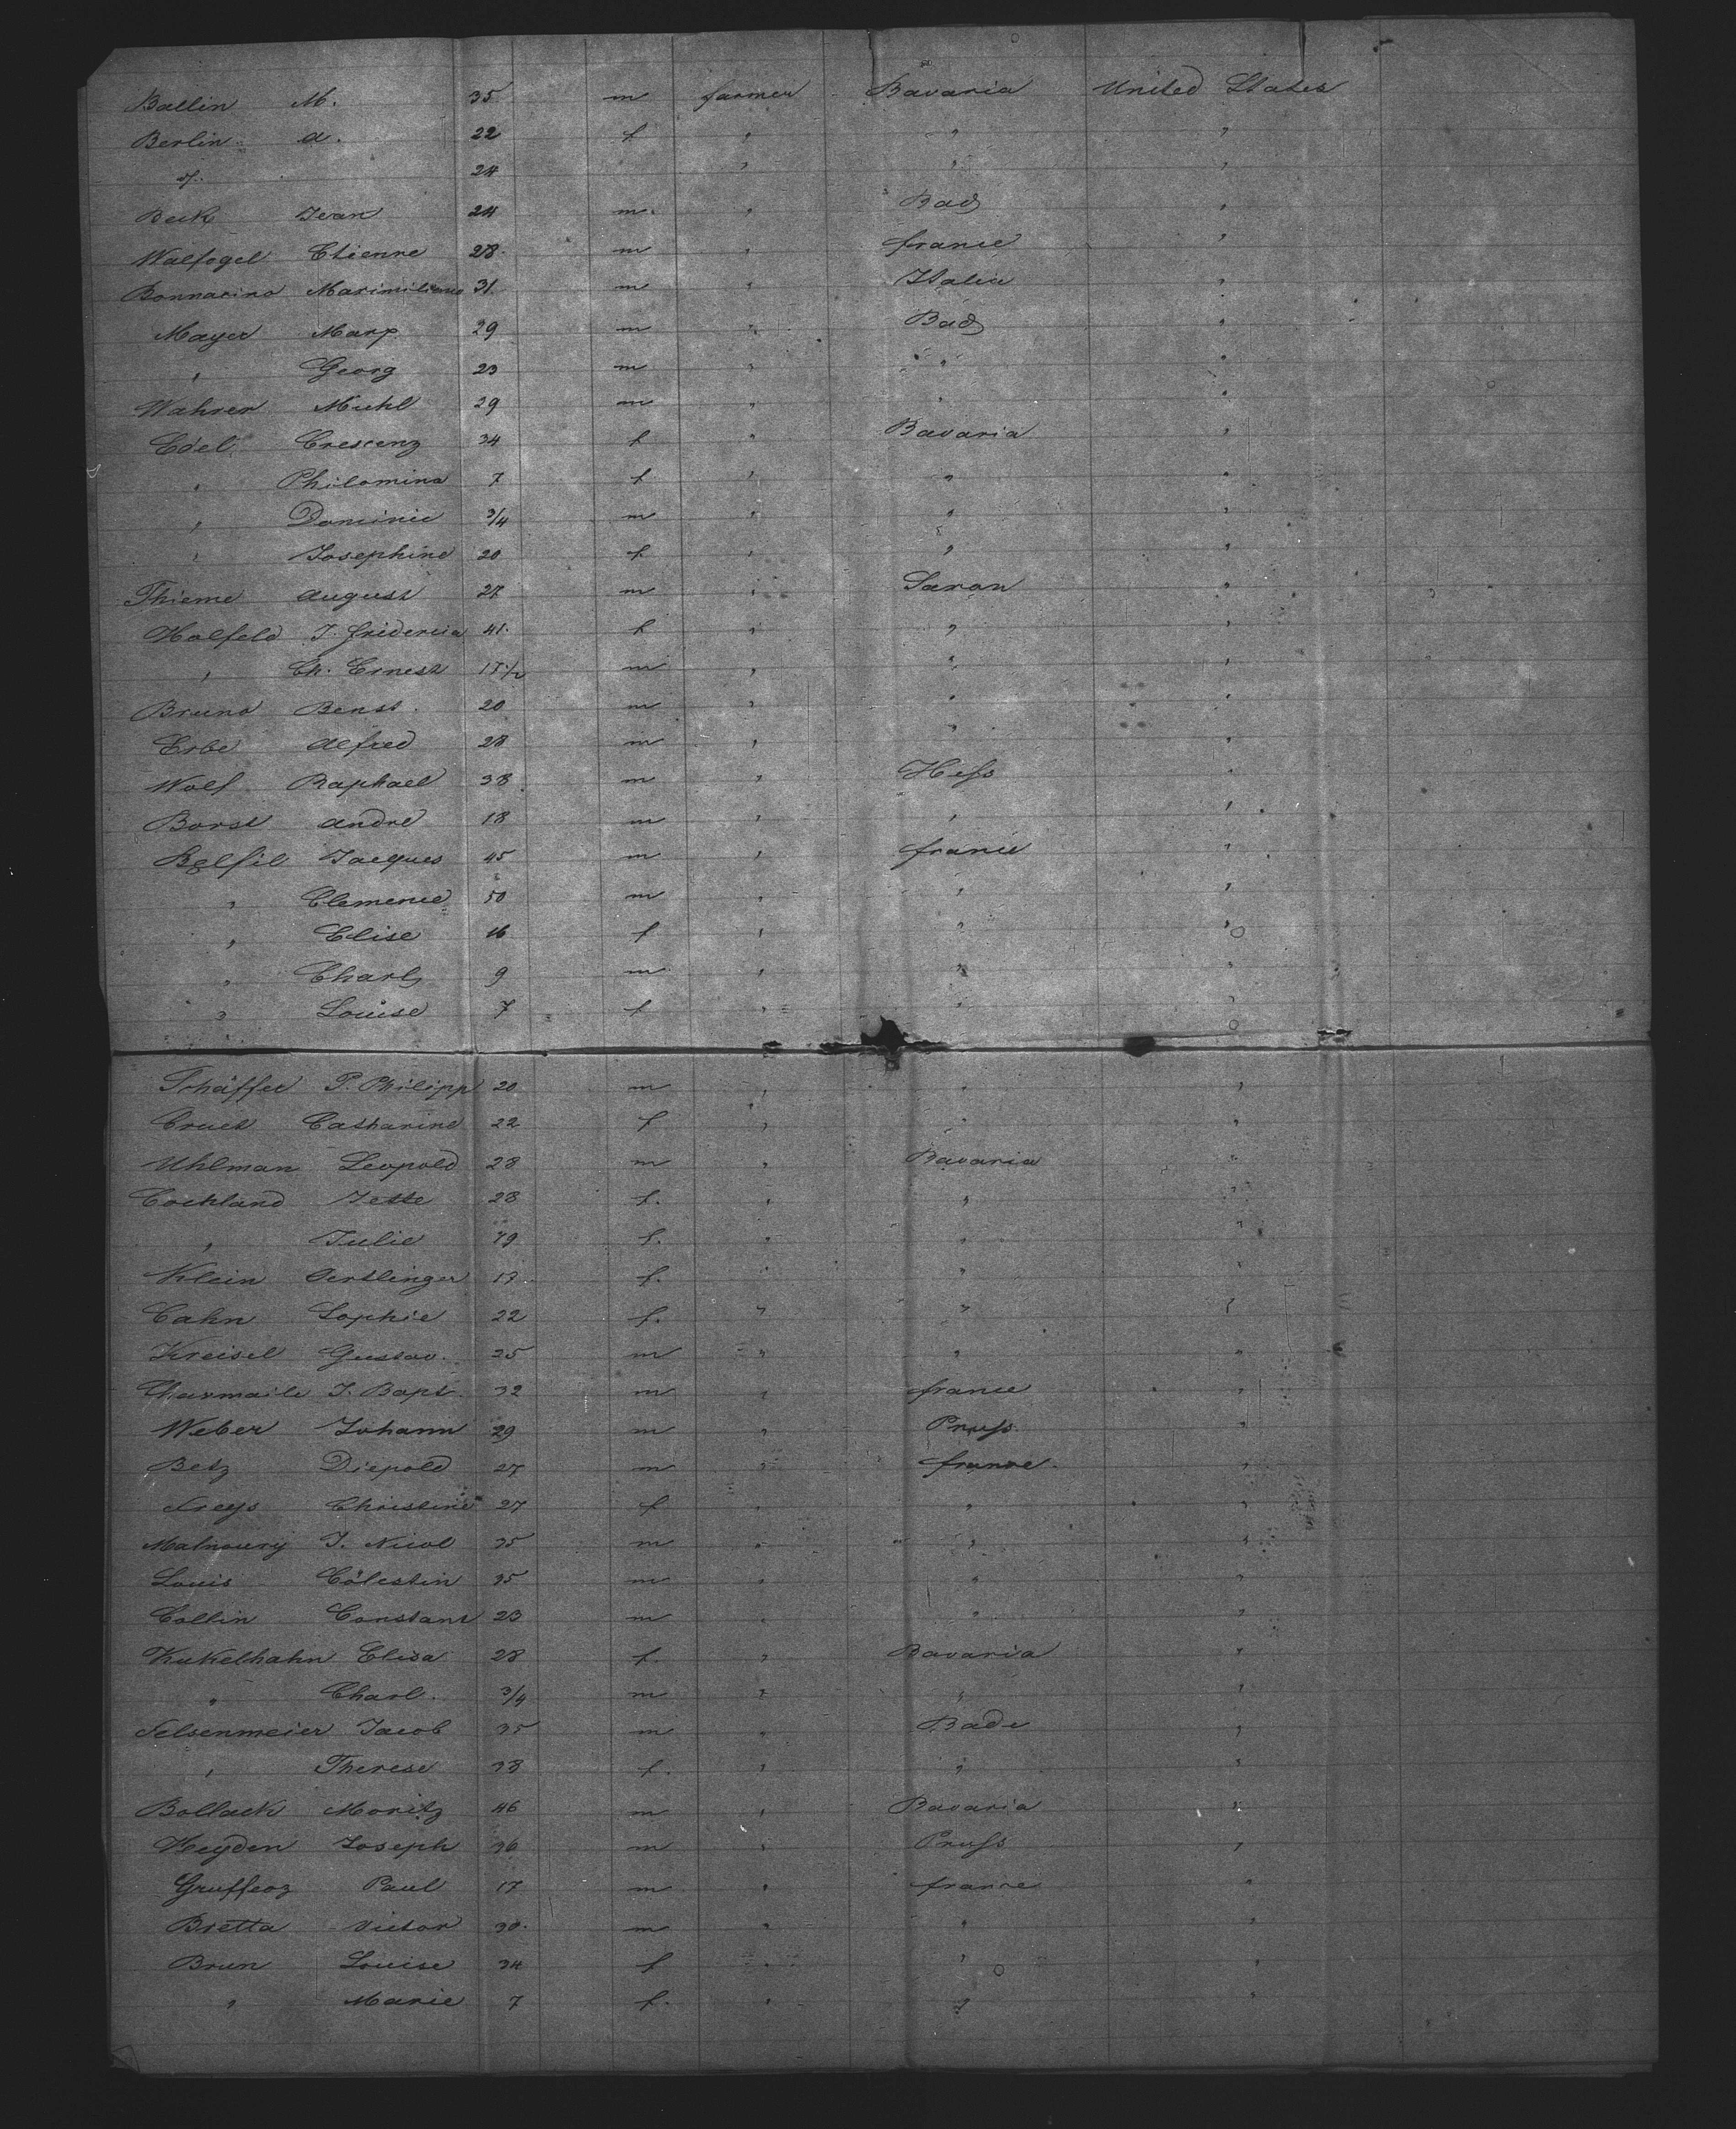 Ballin M. 35 m farmer Bavaria United States
Berlin a. 22 f " " "
24 " " "
Beck Jean 24 m. " Bad "
Walfogel Etienne 28. m " france "
Bonnarino Maximiliano 31. m " Italia "
Mayer Marx 29 m " Bad "
" Georg 23 m " " "
Wahrer Michl 29 m " " "
Edel Crescenz 34 f " Bavaria "
" Philomina 7 f " " "
" Dominic 3/4 m " " "
" Josephine 20 f " " "
Thieme august 27 m " Saxon "
Holfeld J. fridericia 41. f " " "
" Ch. Ernest 1 1/2 m " " "
Bruno Benst. 20 m " " "
Erbe alfred 28 m " " "
Wolf Raphael 38 m " Hess "
Borst andre 18 m " " "
Belfil Jacques 45 m " france "
" Clemence 50 m " " "
" Elise 16 f " " "
" Charls 9 m " " "
" Louise 7 f " " "
Schäffer P. Philipp 20 m " " "
Cruet Catharine 22 f " " "
Uhlman Leopold 28 m " Bavaria "
Cochland Jette 28 f. " " "
" Julie 19 f. " " "
Klein Oertlinger 17 f. " " "
Cahn Sophie 22 f. " " "
Kreisel Gustav. 25 m " " "
Charmaile J. Bapt. 32 m " france "
Weber Johann 29 m " Pruss. "
Betz Diepold 27 m " france. "
Freys Christine 27 f " " "
Malnoury J. Nicol 35 m " " "
Louis Cölestin 35 m " " "
Collin Constant 23 m " " "
Kukelhahn Elisa 28 f. " Bavaria "
" Charl. 3/4 m " " "
Felsenmeier Jacob 35 m " Bade "
" Therese 38 f. " " "
Bollack Moritz 46 m " Bavaria "
Heyden Joseph 36 m " Pruss "
Gruffeoz Paul 17 m " france "
Bretta Victor 30. m " " "
Brun Louise 34 f " " "
" Marie 7 f. " " "